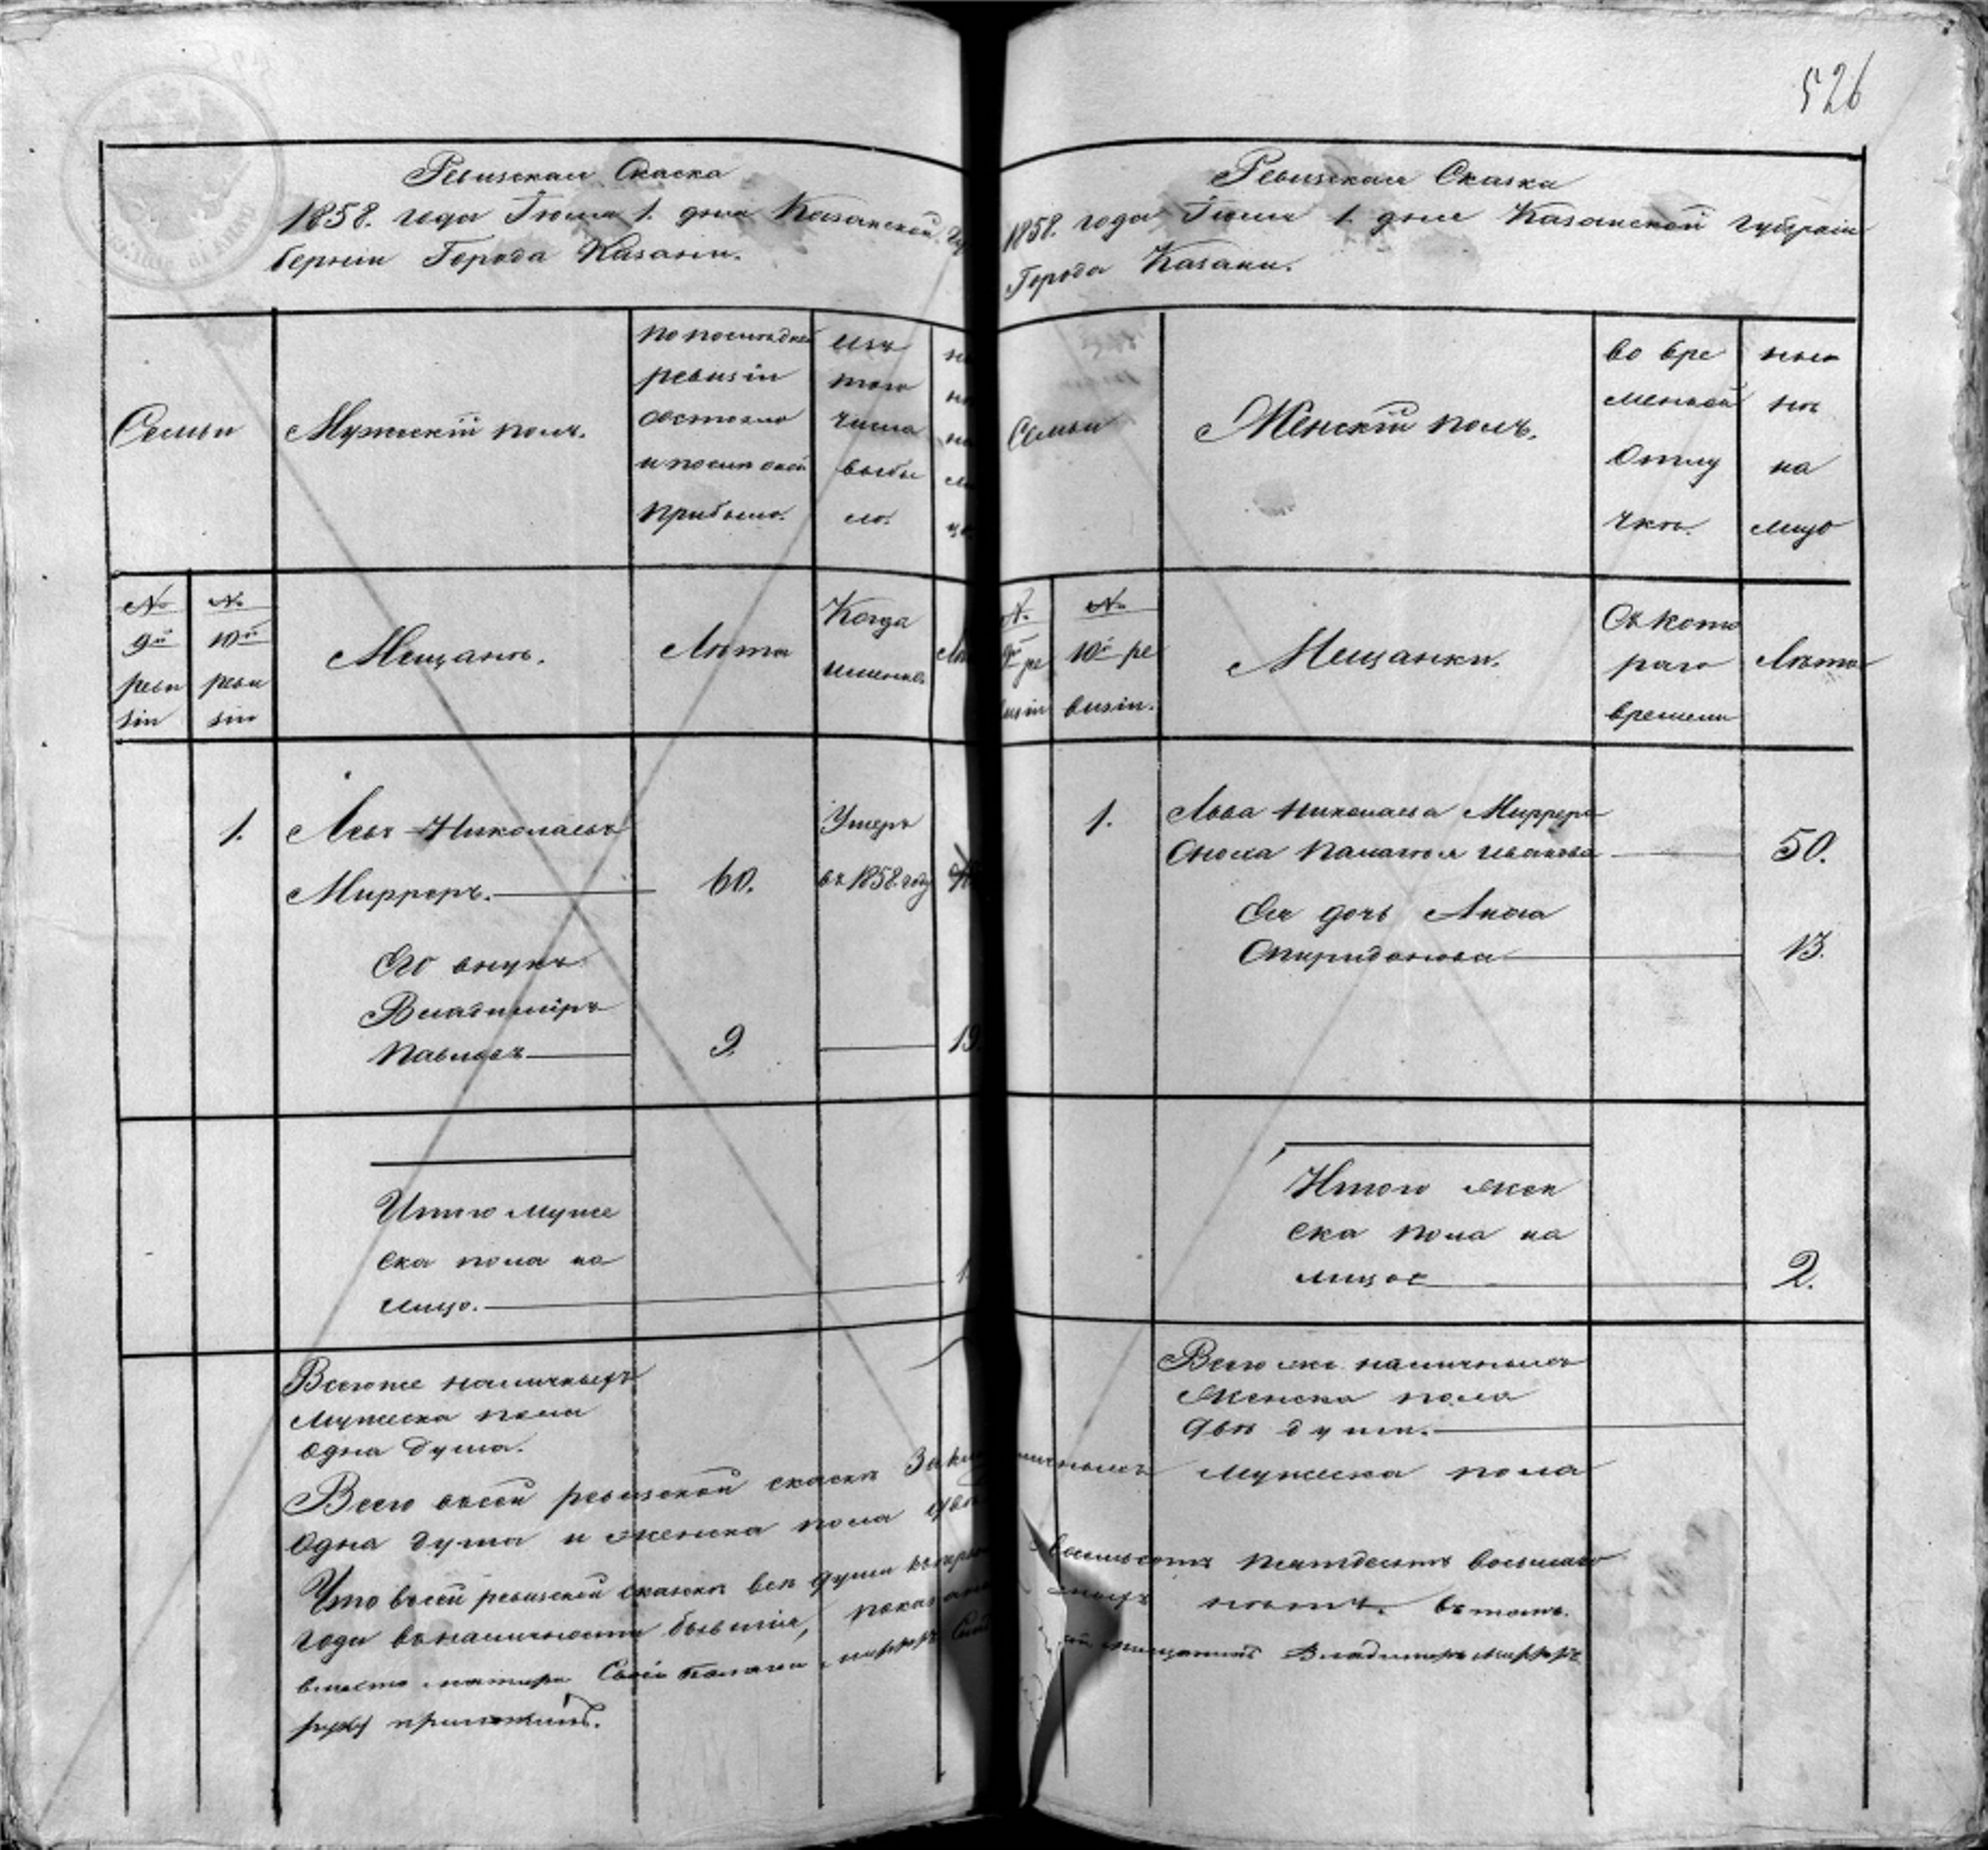 526
Ревизская Скаска
1858. года Іюля 1. дня Казанской Гу
берніи Города Казани.
Семьи
Мужескій полъ.
по послѣдней
ревизіи
состояло
и послѣ оной
прибыло.
изъ
того
числа
выбы
ло.
№
9й
реви
зіи
№
10й
реви
зіи
Мещанъ.
Лѣта
Когда
именно
1.
Левъ Николаевъ
Мирреръ.
60.
Умеръ
въ 1858. году
Его внукъ
Владиміръ
Павловъ
9.
19.
Итого муже
ска пола на
лицо.
1
Всего же наличныхъ
Мужеска пола
одна душа.
Ревизская Сказка
1858. года Іюля 1. дня Казанской губерніи
Города Казани.
Семьи
Женскій полъ.
во вре
менной
отлу
чкѣ.
ныне
на
лицо
№
9й ре
визіи
№
10й ре
визіи.
Мещанки.
Съ кото
раго
времени
Лѣта
1.
Льва Николаева Миррера
Сноха Палагея Иванова
50.
Ея дочь Анна
Спиридонова
13.
Итого жен
ска пола на
лицо
2.
Всего же наличныхъ
Женска пола
двѣ души.
Всего въ сей ревизской скаскѣ мужеска пола
одна душа и женска пола двѣ
Что въ сей ревизской сказкѣ всѣ души восемьсотъ пятдесятъ восьмаго
года въ наличности бывшія, показаны нѣтъ. въ томъ.
вместо матери своей Палагеи Мирреръ мещанинъ Владимиръ Мирреръ
руку приложилъ.